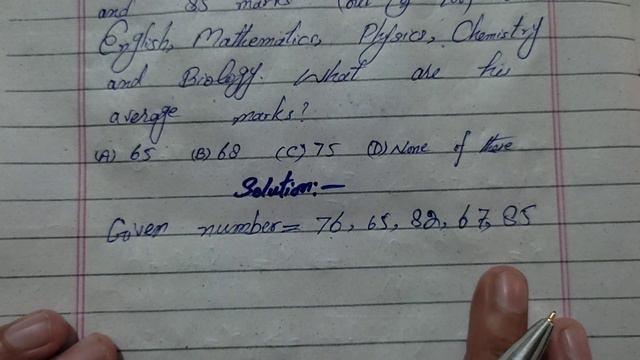 and 85 marks (out of 100)
English, Mathematics, Physics, Chemistry
and Biology. What are his
average marks?
(A) 65 (B) 68 (C) 75 (D) None of these
Solution:-
Given number = 76, 65, 82, 67, 85